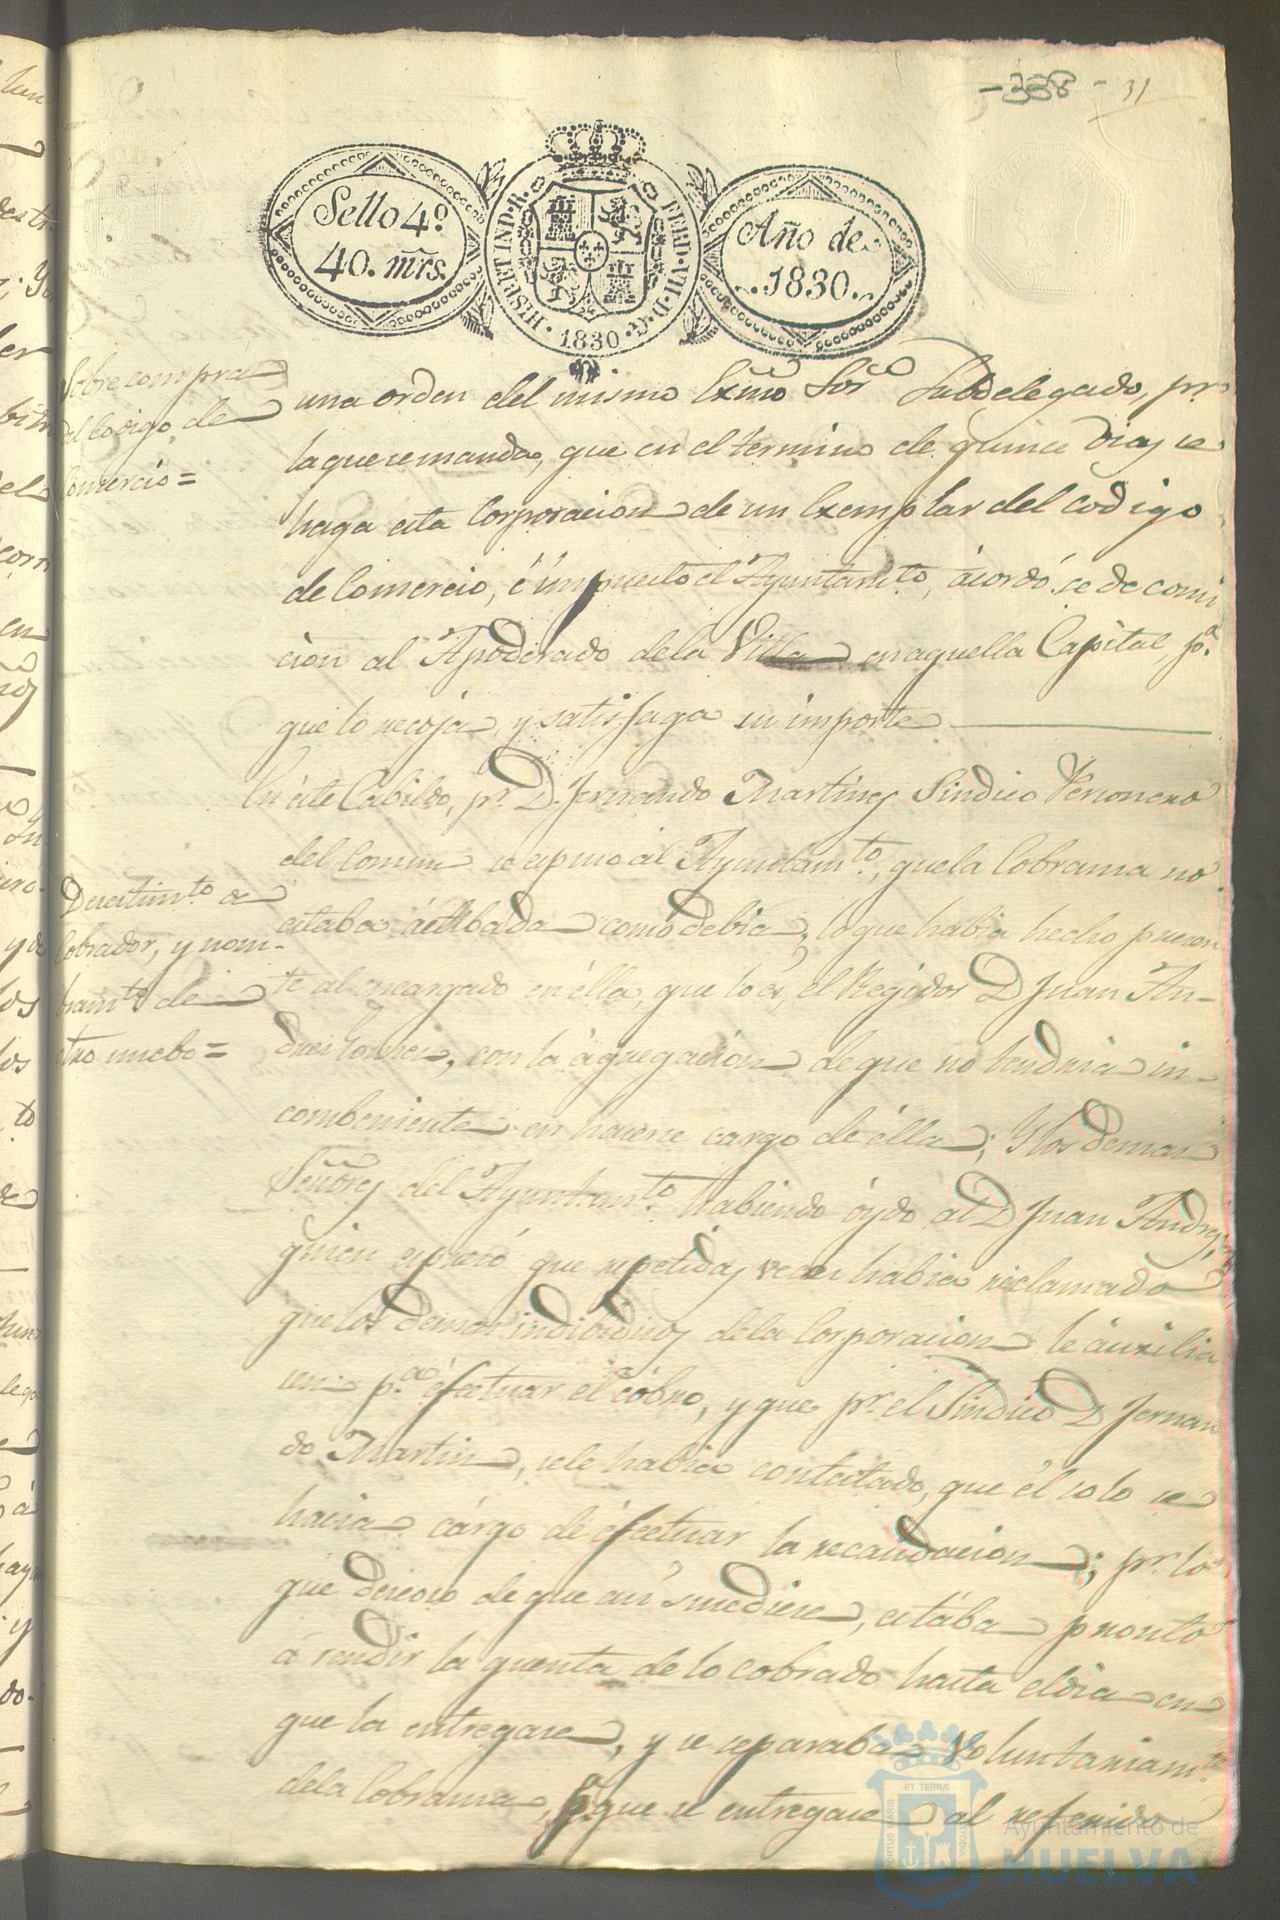 -338- 31
Sello 4º
40. mrs.
HISP. ET IND. R. FERD. VII. D. G.
1830
Año de
1830
Sobre compra
del Codigo de
Comercio =
una orden del mismo Exmo Sor Subdelegado, pr.
la que se manda, que en el termino de quince dias se
haga esta Corporacion de un Exemplar del codigo
de Comercio, é impuesto el Ayuntamto, acordó se de comi
cion al Apoderado de la Villa en aquella Capital, pa.
que lo recoja, y satisfaga su importe
En éste Cabildo, pr. D. Fernando Martinez Sindico Personero
del Comun se espuso al Ayuntamto, que la Cobranza no
estaba áctibada como debia, lo que habia hecho presen
te al encargado en élla, que lo es, el Regidor D Juan An-
dres, con la ágregacion de que no tendria in-
combeniente en hacerse cargo de élla; Y los demas
Señores del Ayuntamto. habiendo óydo al D Juan Andres,
quien espresó que repetidas veces habia reclamado
que los demas individuos de la Corporacion le auxilia
sen pa. éfectuar el cóbro, y que pr. el Sindico D Fernan
do Martin, se le habia contestado, que él solo se
hacia cárgo de éfectuar la recaudacion; pr. lo
que deseoso de que así sucediese, estába pronto
á rendir la quenta de lo cobrado hasta el dia en
que la entregase, y se separaba voluntariamte
de la Cobranza, pa. que se entregase al referido
Desestimto de
Cobrador, y nom-
bramto de
otro nuebo =
PORTUS MARIS ET TERRÆ CUSTODIA
Ayuntamiento de
HUELVA